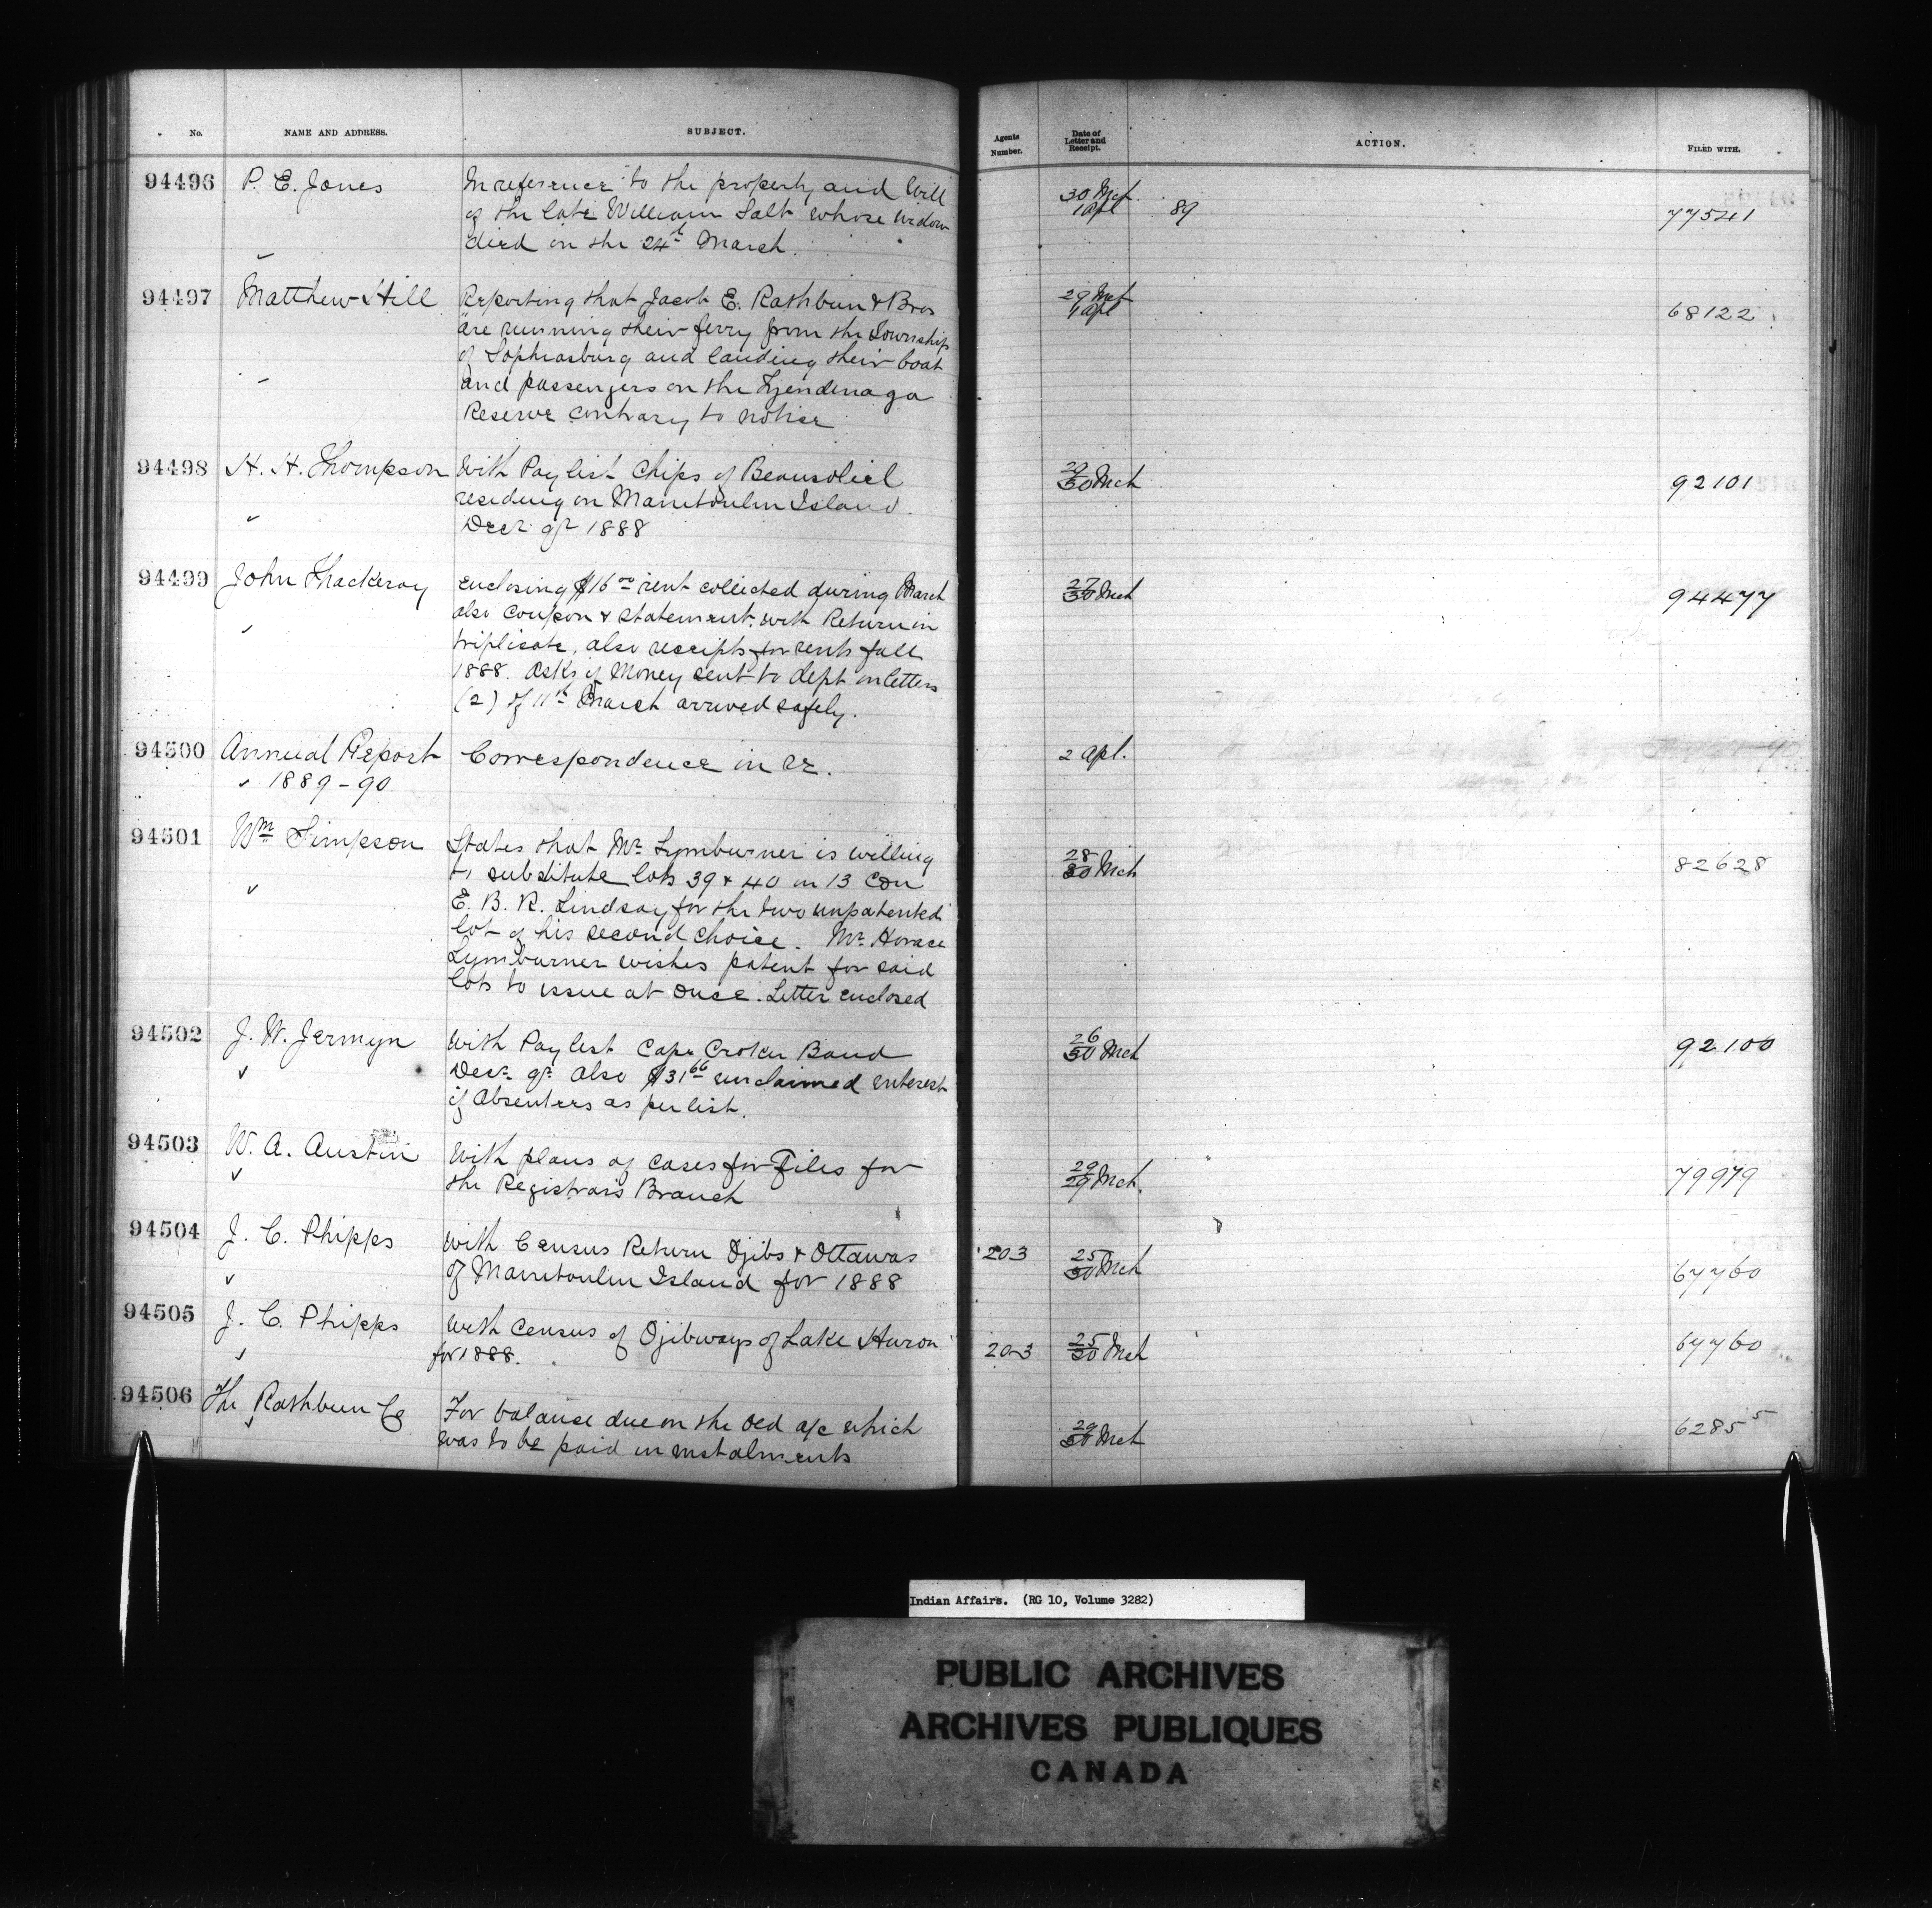 No. NAME AND ADDRESS. SUBJECT. Agents Number. Date of Letter and Receipt. ACTION. FILED WITH.
94496 P. E. Jones In reference to the property and Will 30 Mch 1 Apl 89 77541
of the late William Salt whose widow
died on the 24th March.
94497 Matthew Hill Reporting that Jacob E. Rathbun & Bros 29 Mch 1 Apl 68122
are running their ferry from the Township
of Sophiasburg and landing their boat
and passengers on the Tyendinaga
Reserve contrary to notice
94498 H. H. Thompson With Pay list Chips of Beausoliel 29/30 Mch 92101
residing on Manitoulin Island.
Decr qr 1888
94499 John Thackeray Enclosing $16.00 rent collected during March 27/30 Mch 94477
also coupon & statement. with Return in
triplicate, also receipts for rents fall
1888. Asks if Money sent to Dept in letters
(2) of 11th March arrived safely.
94500 Annual Report Correspondence in re. 2 Apl.
1889-90
94501 Wm Simpson States that Mr Lymburner is willing 28/30 Mch 82628
to substitute lots 39 & 40 in 13 Con
E. B. R. Lindsay for the two unpatented
lot of his second choice. Mr Horace
Lymburner wishes patent for said
lots to issue at once. Letter enclosed
94502 J. W. Jermyn With Pay list Cape Croker Band 26/30 Mch 92100
Decr qr also $31.66 unclaimed interest
of Absentees as per list.
94503 W. A. Austin With plans of cases for Files for 29/29 Mch. 79979
the Registrars Branch
94504 J. C. Phipps With Census Return Ojibs & Ottawas 203 25/30 Mch 67760
of Manitoulin Island for 1888
94505 J. C. Phipps With Census of Ojibways of Lake Huron 203 25/30 Mch 67760
for 1888.
94506 The Rathbun Co For balance due on the old a/c which 29/30 Mch 62855
was to be paid in instalments
Indian Affairs. (RG 10, Volume 3282)
PUBLIC ARCHIVES
ARCHIVES PUBLIQUES
CANADA